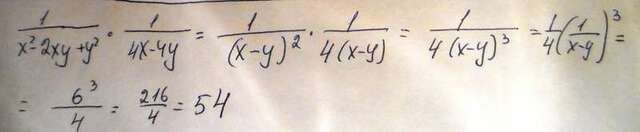 1/(x²-2xy+y²) · 1/(4x-4y) = 1/(x-y)² · 1/4(x-y) = 1/4(x-y)³ = 1/4(1/(x-y))³ =
= 6³/4 = 216/4 = 54